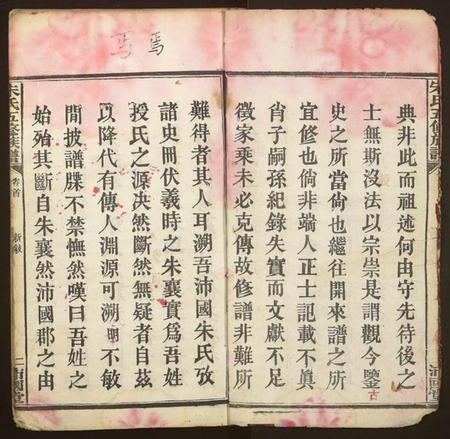 朱氏五修族譜
典非此而祖述何由守先待後之
士無斯沒法以宗崇是謂觀今鑒古
史之所當尙也繼往開來譜之所
宜修也倘非端人正士記載不眞
肖子嗣孫紀錄失實而文獻不足
徵家乘未必克傳故修譜非難所
難得者其人耳溯吾沛國朱氏攷
諸史冊伏羲時之朱襄實爲吾姓
授氏之源決然斷然無疑者自茲
以降代有傳人淵源可溯明不敏
閒披譜牒不禁憮然嘆曰吾姓之
始殆其斷自朱襄然沛國郡之由
朱氏五修族譜 卷首 新敘 二 沛國堂
焉